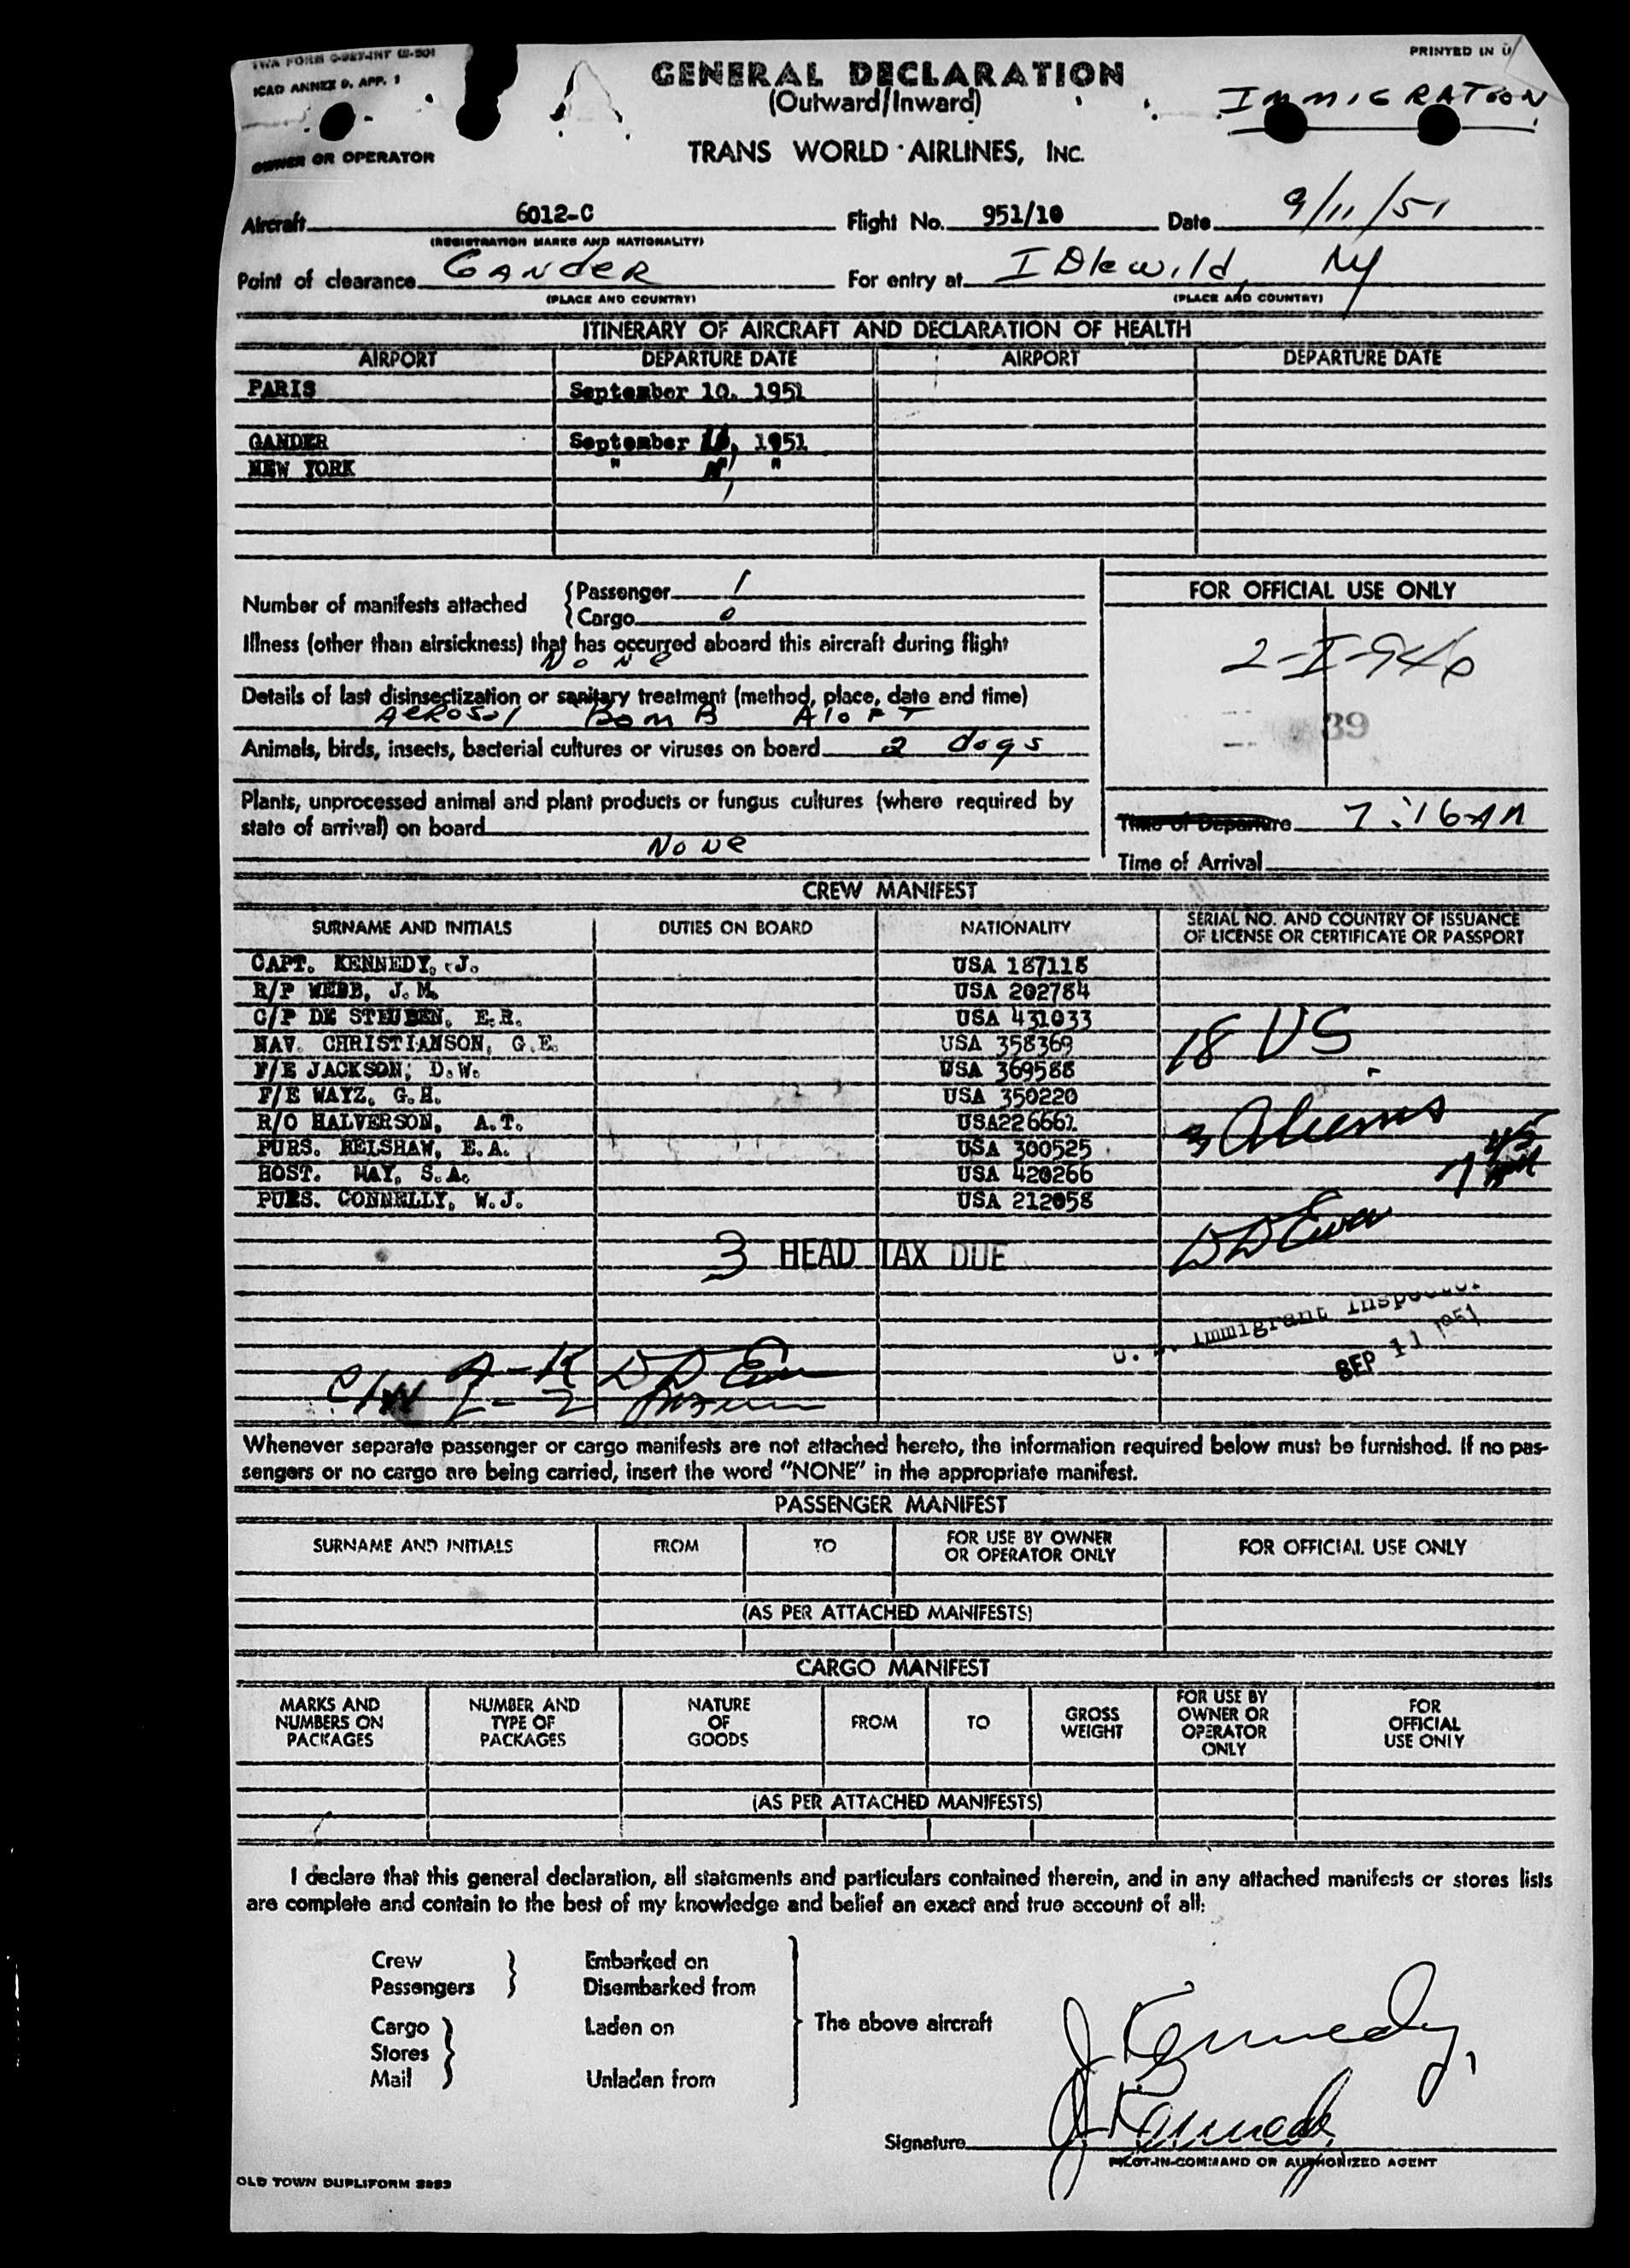 TWA FORM
ICAO ANNEX 9, APP. 1
PRINTED IN U
GENERAL DECLARATION
(Outward/Inward)
IMMIGRATION
OWNER OR OPERATOR
TRANS WORLD AIRLINES, INC.
Aircraft 6012-C Flight No. 951/10 Date 9/11/51
(REGISTRATION MARKS AND NATIONALITY)
Point of clearance GANDER For entry at IDlewild, NY
(PLACE AND COUNTRY) (PLACE AND COUNTRY)
ITINERARY OF AIRCRAFT AND DECLARATION OF HEALTH
AIRPORT DEPARTURE DATE AIRPORT DEPARTURE DATE
PARIS September 10, 1951
GANDER September 11, 1951
NEW YORK " "
Number of manifests attached {Passenger 1
{Cargo 0
FOR OFFICIAL USE ONLY
Illness (other than airsickness) that has occurred aboard this aircraft during flight
None
2-I-946
Details of last disinsectization or sanitary treatment (method, place, date and time)
Aerosol Bomb Aloft
39
Animals, birds, insects, bacterial cultures or viruses on board 2 dogs
Plants, unprocessed animal and plant products or fungus cultures (where required by
state of arrival) on board
None
Time of Departure 7:16 AM
Time of Arrival
CREW MANIFEST
SURNAME AND INITIALS DUTIES ON BOARD NATIONALITY SERIAL NO. AND COUNTRY OF ISSUANCE OF LICENSE OR CERTIFICATE OR PASSPORT
CAPT. KENNEDY, J. USA 187118
R/P WEBB, J.M. USA 202784
C/P DE STEUBEN, E.R. USA 431033
NAV. CHRISTIANSON, G.E. USA 358369
18 US
F/E JACKSON, D.W. USA 369588
F/E WAYZ, G.H. USA 350220
R/O HALVERSON, A.T. USA226661
3 Aliens
PURS. RELSHAW, E.A. USA 300525
HOST. MAY, S.A. USA 420266
PURS. CONNELLY, W.J. USA 212058
3 HEAD TAX DUE
U. S. Immigrant Inspector
SEP 11 1951
A-K
L-Z
Whenever separate passenger or cargo manifests are not attached hereto, the information required below must be furnished. If no pas-
sengers or no cargo are being carried, insert the word "NONE" in the appropriate manifest.
PASSENGER MANIFEST
SURNAME AND INITIALS FROM TO FOR USE BY OWNER OR OPERATOR ONLY FOR OFFICIAL USE ONLY
(AS PER ATTACHED MANIFESTS)
CARGO MANIFEST
MARKS AND NUMBERS ON PACKAGES NUMBER AND TYPE OF PACKAGES NATURE OF GOODS FROM TO GROSS WEIGHT FOR USE BY OWNER OR OPERATOR ONLY FOR OFFICIAL USE ONLY
(AS PER ATTACHED MANIFESTS)
I declare that this general declaration, all statements and particulars contained therein, and in any attached manifests or stores lists
are complete and contain to the best of my knowledge and belief an exact and true account of all:
Crew Embarked on
Passengers Disembarked from
Cargo Laden on The above aircraft
Stores
Mail Unladen from
J. Kennedy,
Signature J. Kennedy
PILOT-IN-COMMAND OR AUTHORIZED AGENT
OLD TOWN DUPLIFORM